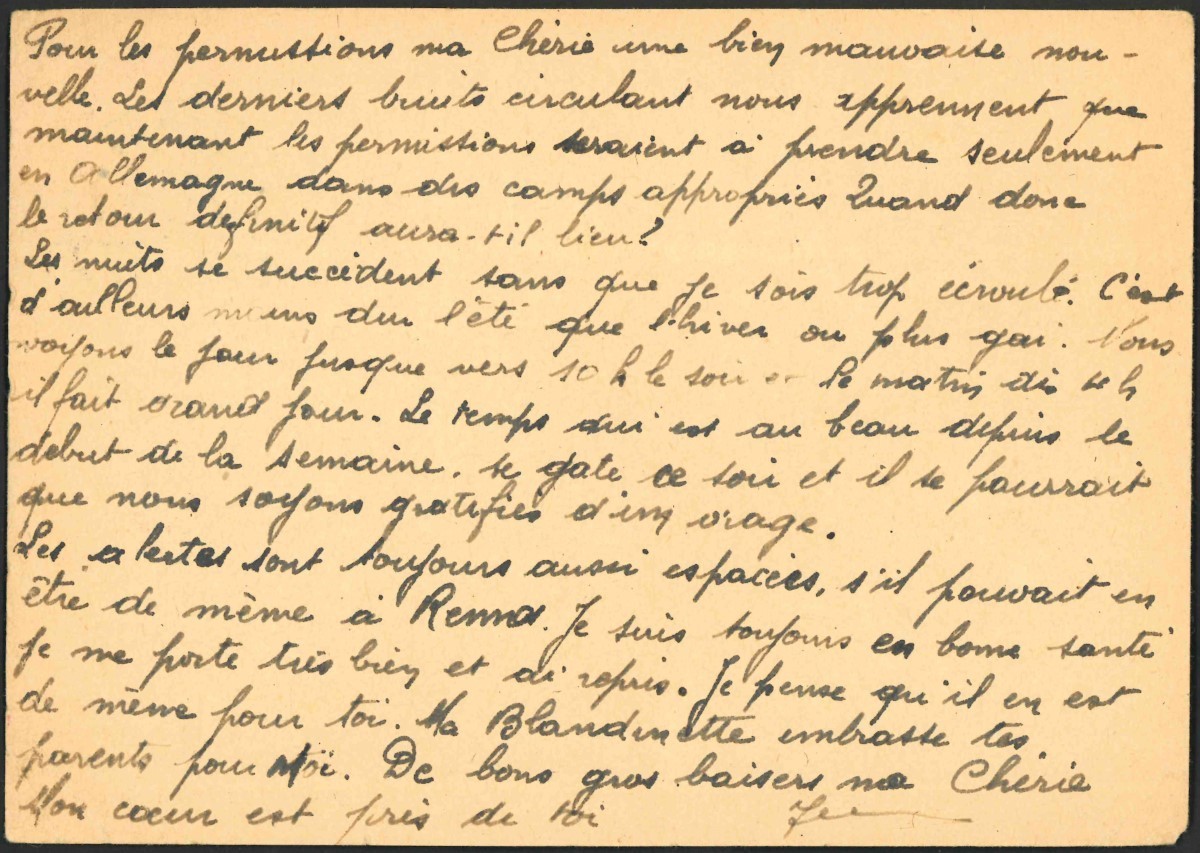 Pour les permissions ma Chérie une bien mauvaise nou-
velle. Les derniers bruits circulant nous apprennent que
maintenant les permissions seraient à prendre seulement
en Allemagne dans des camps appropriés Quand donc
le retour definitif aura-t-il lieu?
Les nuits se succèdent sans que je sois trop écroulé. C'est
d'ailleurs moins dur l'été que l'hiver ou plus gai. Nous
voyons le jour jusque vers 10 h le soir et le matin dès
il fait grand jour. Le temps qui est au beau depuis le
debut de la semaine, se gate ce soir et il se pourrait
que nous soyons gratifiés d'un orage.
Les alertes sont toujours aussi espacées, s'il pouvait en
être de même à Rennes. Je suis toujours en bonne santé
je me porte très bien et ai repris. Je pense qu'il en est
de même pour toi. Ma Blandinette embrasse tes
parents pour Moi. De bons gros baisers ma Chérie
Mon cœur est près de toi